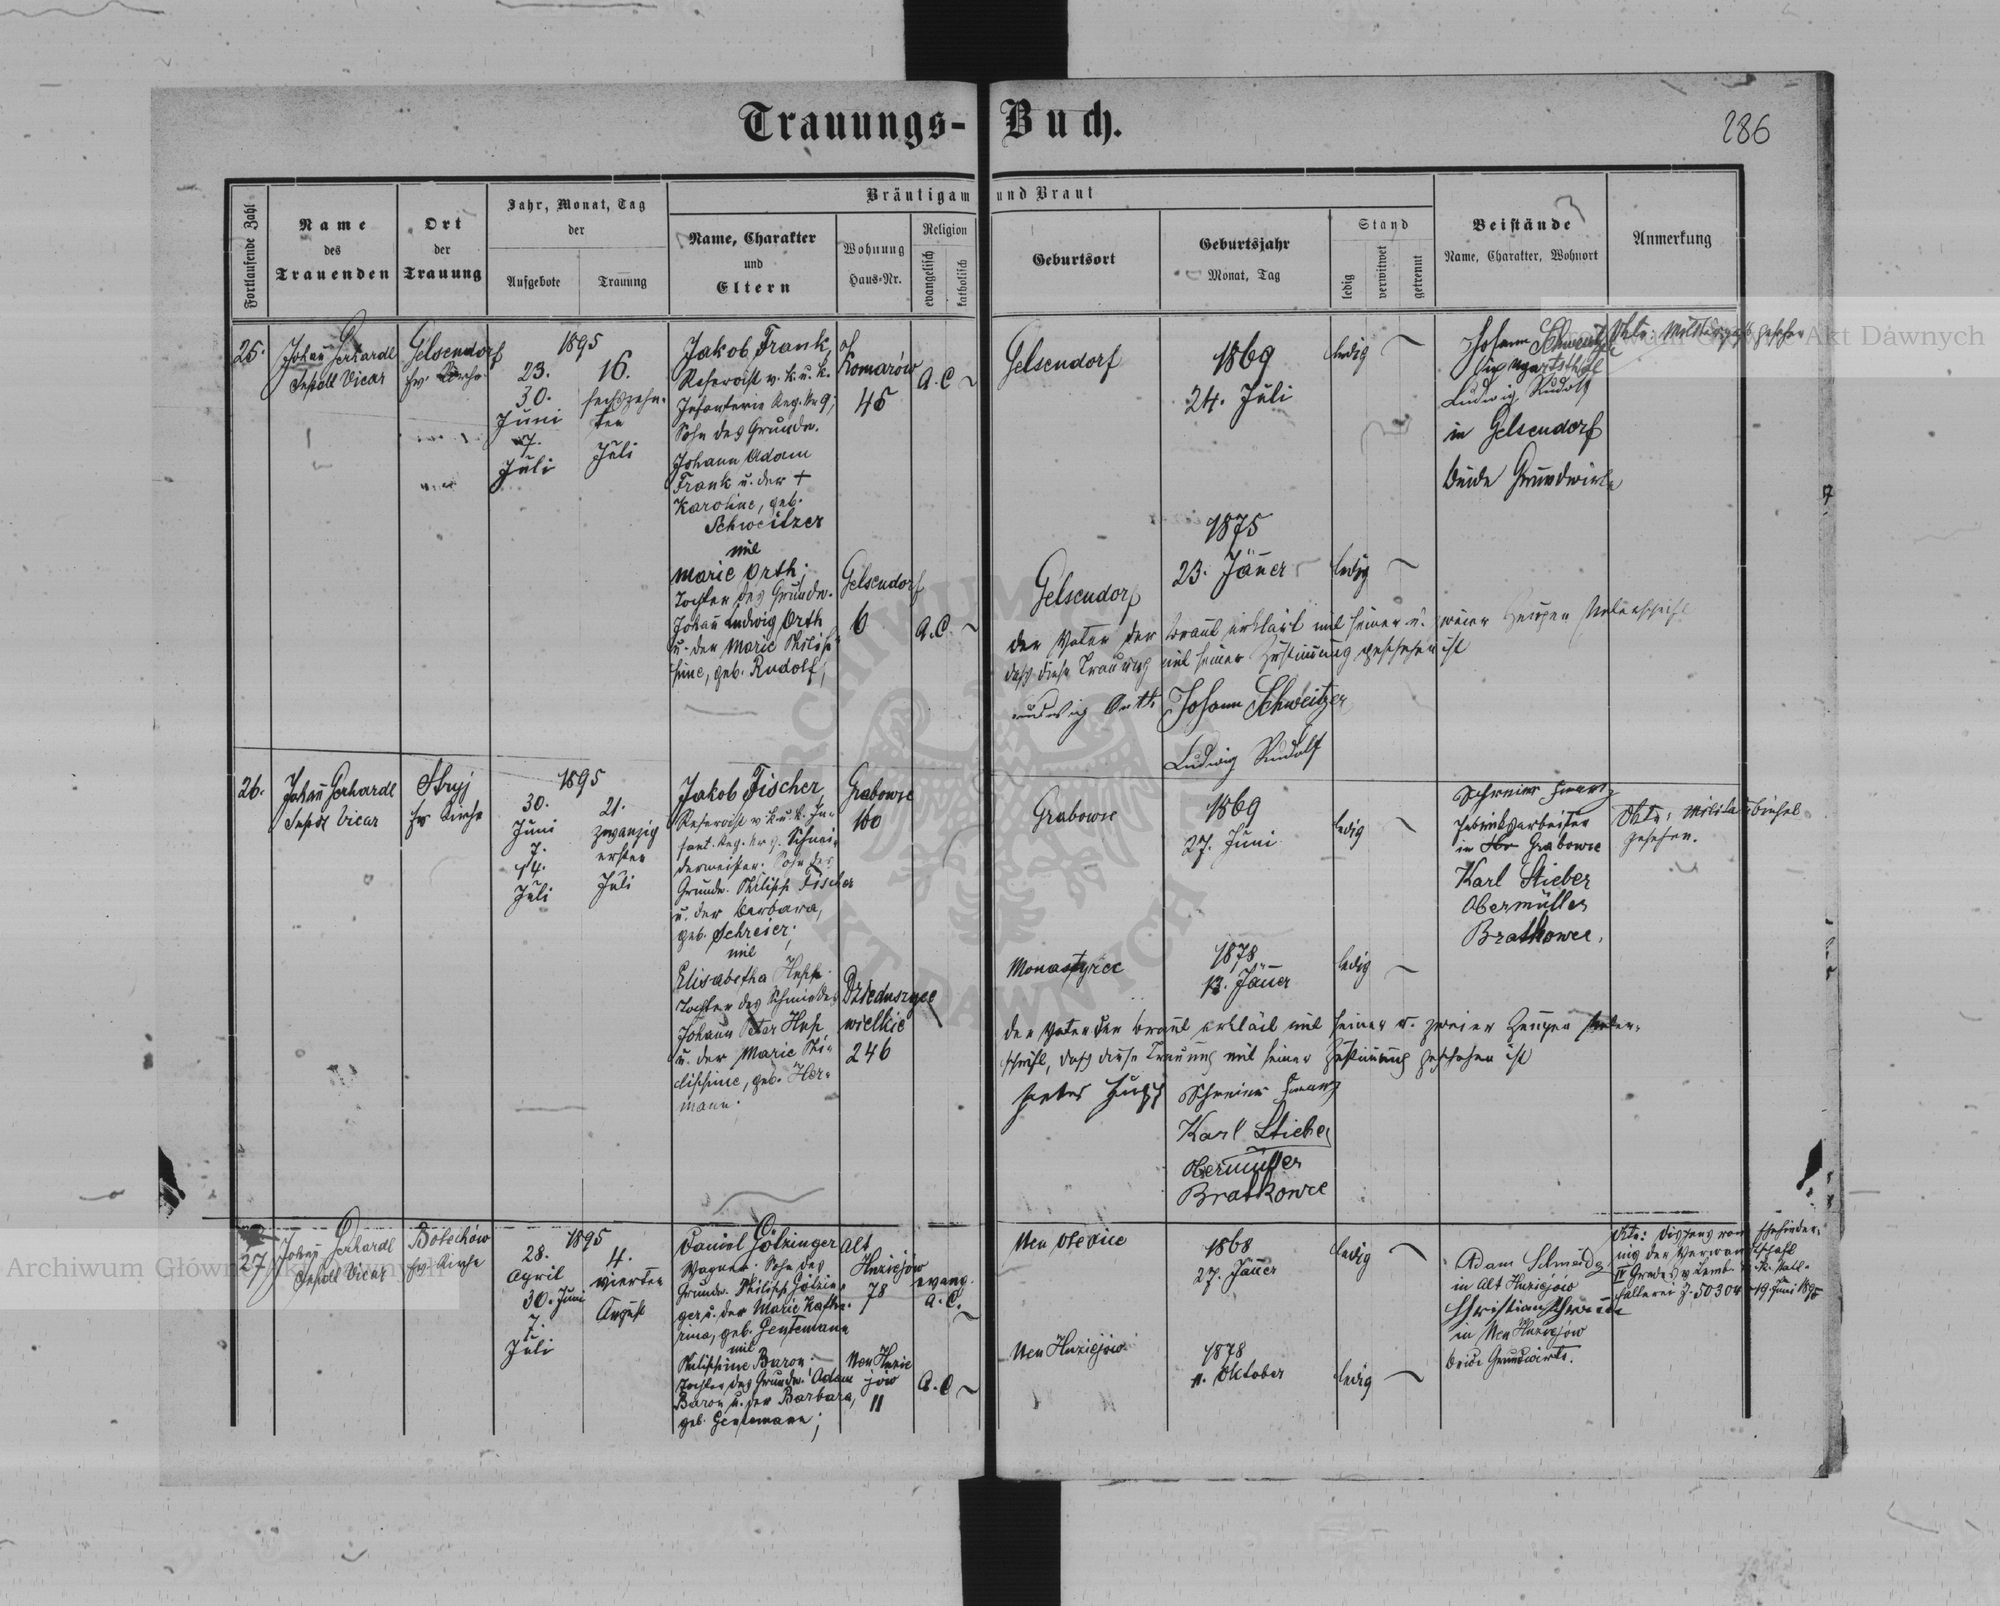 Trauungs-Buch.
286
Fortlaufende Zahl
Name
des
Trauenden
Ort
der
Trauung
Jahr, Monat, Tag
der
Aufgebote
Trauung
Bräutigam und Braut
Name, Charakter
und
Eltern
Wohnung
Haus-Nr.
Religion
evangelisch
katholisch
Geburtsort
Geburtsjahr
Monat, Tag
Stand
ledig
verwitwet
getrennt
Beistände
Name, Charakter, Wohnort
Anmerkung
25.
Johañ Gerhardt
Vicar
Gelsendorf
ev. Kirche
1895
23.
30.
Juni
7.
Juli
16.
sechszehn-
ten
Juli
Jakob Frank,
Reservist v. k. u. k.
Infanterie Reg. Nr 9;
Sohn des Grundw.
Johann Adam
Frank u. der +
Karoline, geb.
Schweitzer
mit
Marie Orth.
Tochter des Grundw.
Johañ Ludwig Orth
u. der Marie Philip-
pine, geb. Rudolf,
Komarów
45
A.C.
Gelsendorf
6
A.C.
Gelsendorf
1869
24. Juli
ledig
Johann Schweitzer
Ludwig Rudolf
in Gelsendorf
beide Grundwirte
Gelsendorf
1875
23. Jäner
ledig
der Vater der Braut erklärt mit seiner u. zweier Zeugen Unterschrift
daß diese Trauung mit seiner Zustimmung geschehen ist
Ludwig Orth
Johann Schweitzer
Ludwig Rudolf
26.
Johañ Gerhardt
Vicar
Stryj
ev Kirche
1895
30.
Juni
7.
14.
Juli
21.
zwanzig
ersten
Juli
Jakob Fischer,
Reservist v k. u. k. In-
fant. Reg. Nr 9. Schnei-
dermeister. Sohn des
Grundw. Philipp Fischer
u. der Barbara,
geb. Schreier;
mit
Elisabetha Hupp.
Tochter des Schmiedes
Johann Peter Hupp
u. der Marie Phi-
lippine, geb. Her-
mann.
Grabowce
100
Dzieduszyce
wielkie
246
Grabowce
1869
27. Juni
ledig
Schreier Franz
Fabriksarbeiter
in Grabowce
Karl Stieber
Obermüller
Bratkowce.
gesehen.
Monastyrec
1878
13. Jäner
ledig
der Vater der Braut erklärt mit seiner u. zweier Zeugen Unter-
schrift, daß diese Trauung mit seiner Zustimmung geschehen ist
Peter Hupp
Schreier Franz
Karl Stieber
Obermüller
Bratkowce
27.
Johañ Gerhardt
Vicar
Bolechów
ev. Kirche
1895
28.
April
30. Juni
7.
Juli
4.
vierten
August
Daniel Götzinger
Wagner. Sohn des
Grundw. Philipp Götzin-
ger u. der Marie Katha-
rina, geb. Gentemann
mit
Philippine Baron.
Tochter des Grundw. Adam
Baron u. der Barbara,
geb. Gentemann;
Alt
Huziejów
78
evang.
A.C.
Neu Huzie
jów
11
A.C.
Neu Olexice
1868
27. Jäner
ledig
Adam Schmidg
in Alt Huziejów
Christian
in Neu Huziejów
beide Grundwirte.
Neu Huziejów
1878
11. Oktober
ledig
Archiwum Główne Akt Dawnych